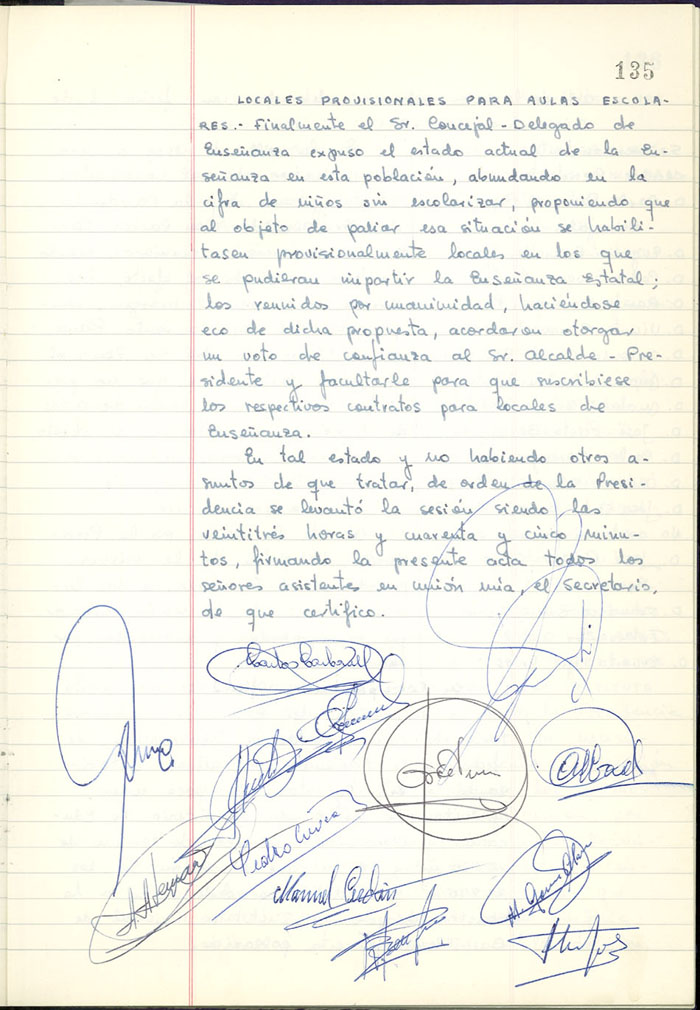 135
LOCALES PROVISIONALES PARA AULAS ESCOLA-
RES.- Finalmente el Sr. Concejal-Delegado de
Enseñanza expuso el estado actual de la En-
señanza en esta población, abundando en la
cifra de niños sin escolarizar, proponiendo que
al objeto de paliar esa situación se habili-
tasen provisionalmente locales en los que
se pudieran impartir la Enseñanza Estatal;
los reunidos por unanimidad, haciéndose
eco de dicha propuesta, acordaron otorgar
un voto de confianza al Sr. Alcalde-Pre-
sidente y facultarle para que suscribiese
los respectivos contratos para locales de
Enseñanza.
En tal estado y no habiendo otros a-
suntos de que tratar, de orden de la Presi-
dencia se levantó la sesión siendo las
veintitrés horas y cuarenta y cinco minu-
tos, firmando la presente acta todos los
señores asistentes en unión mía, el Secretario,
de que certifico.
Carlos Carbonell
Pedro
Manuel